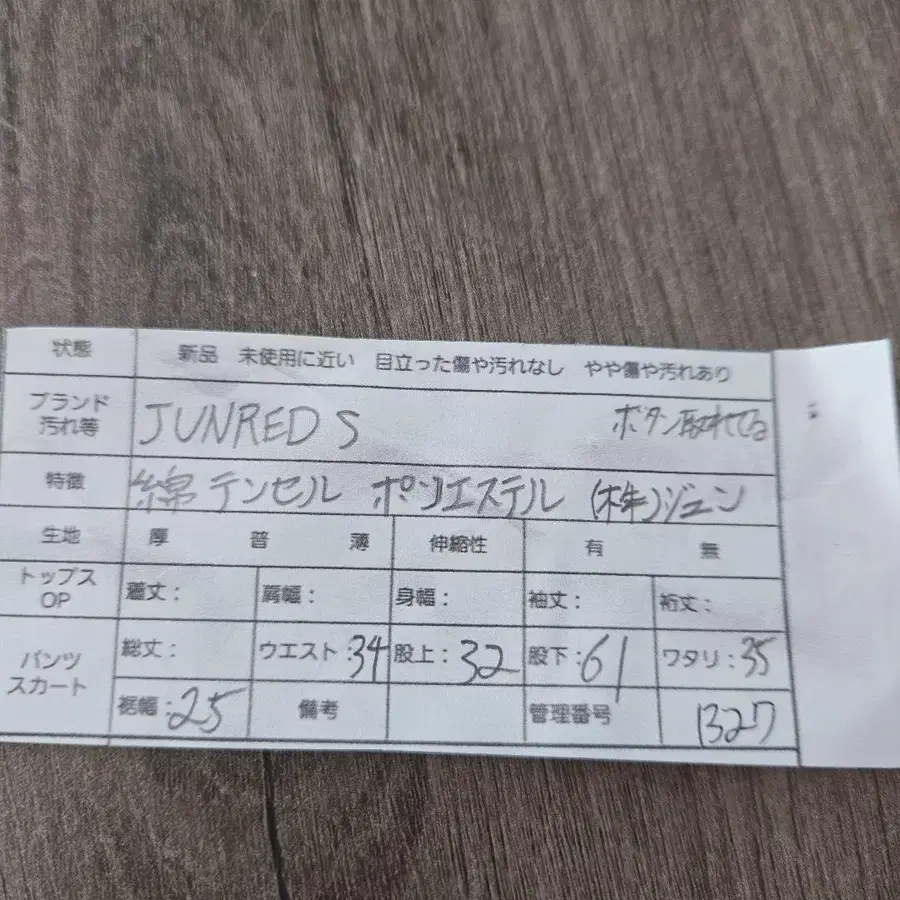 状態 新品 未使用に近い 目立った傷や汚れなし やや傷や汚れあり
ブランド 汚れ等 JUNRED S ボタン取れてる
特徴 綿 テンセル ポリエステル (株)ジュン
生地 厚 普 薄 伸縮性 有 無
トップス OP 着丈: 肩幅: 身幅: 袖丈: 裄丈:
パンツ スカート 総丈: ウエスト:34 股上:32 股下:61 ワタリ:35
裾幅:25 備考 管理番号 1327